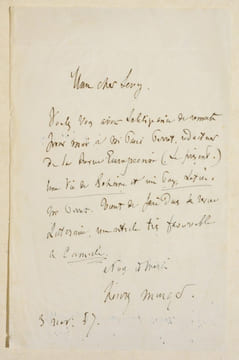 Mon cher Levy.
Voulez vous avoir l'obligeance de remettre
pour moi à Mr Paul Perret, rédacteur
de la Revue Européenne (le présent.)
une Vie de Bohème et un Pays Latin.
Mr vient de faire dans le
Littéraire, un article très favorable
à Camille.
Henry Murger.
3 nov. 57.